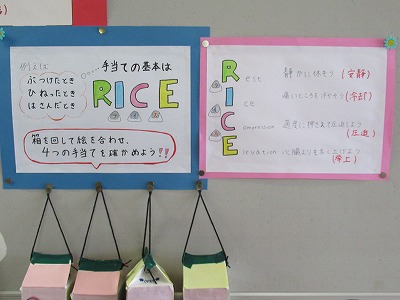 例えば
ぶつけたとき
ひねったとき
はさんだとき
手当ての基本は
RICE
箱を回して絵を合わせ、
4つの手当てを確かめよう!!
Rest 静かに休もう (安静)
Ice 痛いところを冷やそう (冷却)
Compression 適度に押さえて圧迫しよう
(圧迫)
Elevation 心臓よりも高く上げよう
(挙上)
OPEN